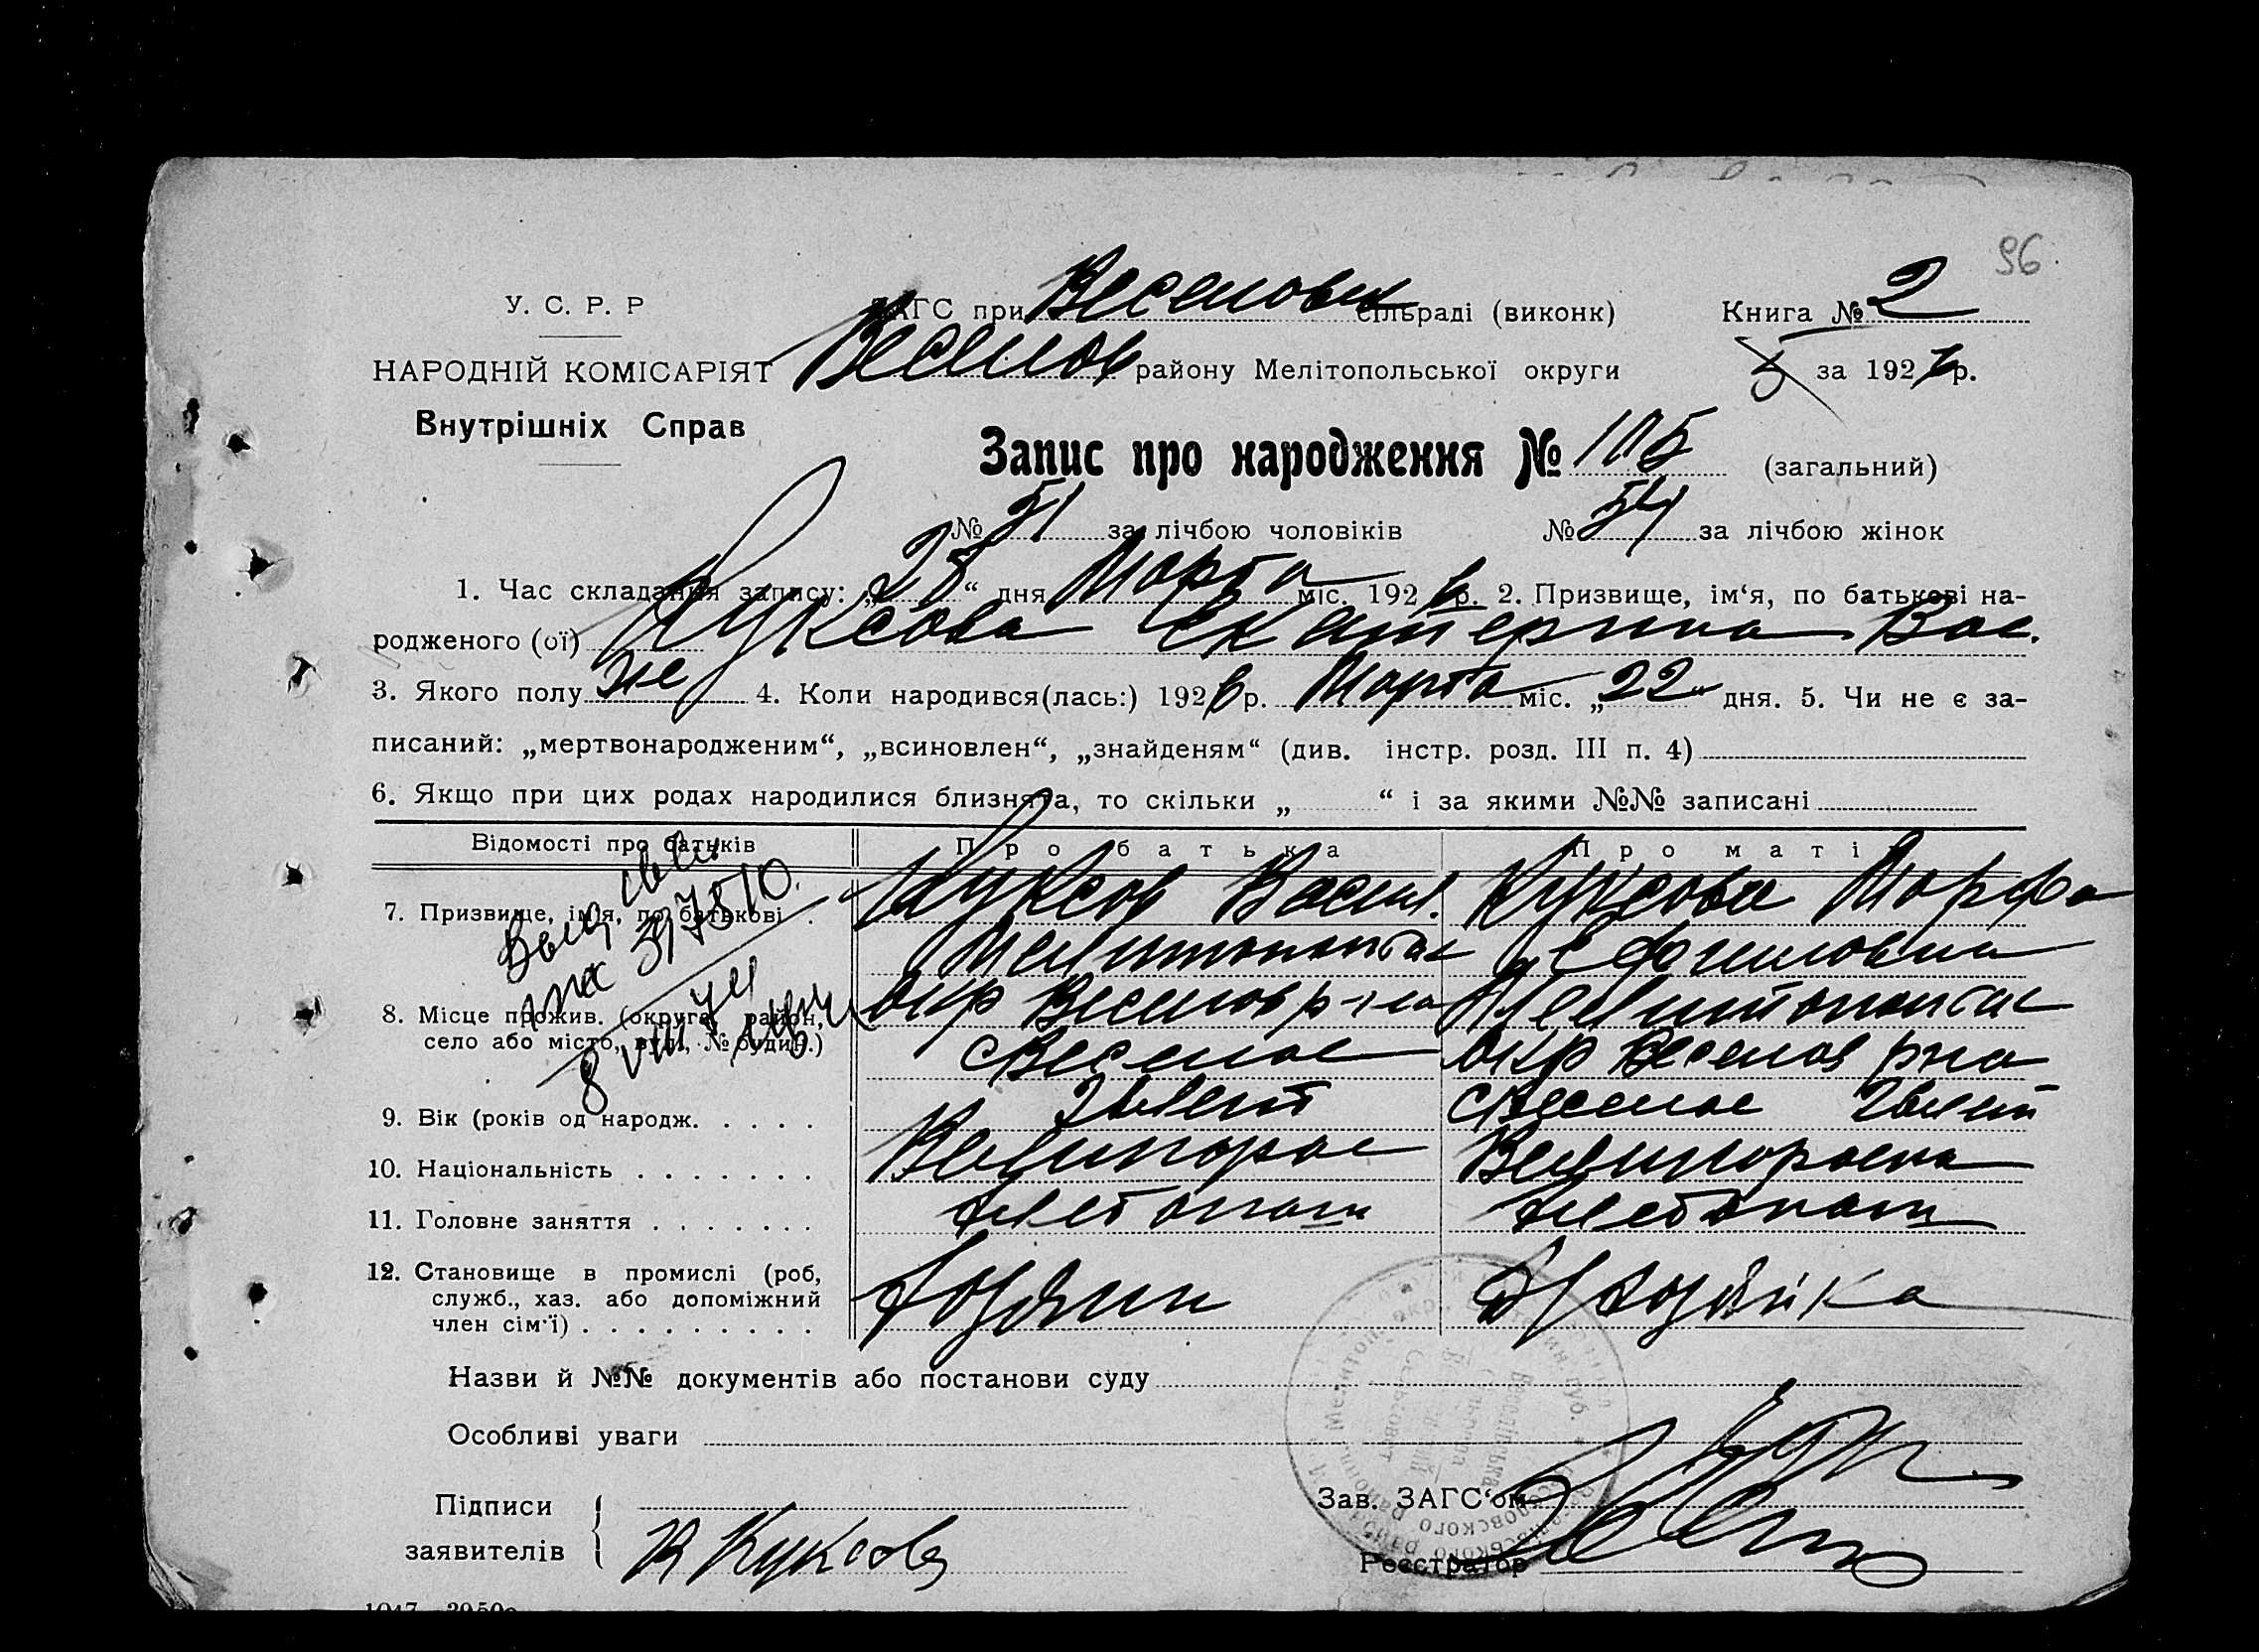 96
У. С. Р. Р
ЗАГС при Веселовск сільраді (виконк)
Книга № 2
НАРОДНІЙ КОМІСАРІЯТ
Веселов району Мелітопольської округи
за 1926 р.
Внутрішніх Справ
Запис про народження № 105 (загальний)
№ 51 за лічбою чоловіків № 54 за лічбою жінок
1. Час складання запису: „28“ дня Марта міс. 1926 р. 2. Призвище, ім‘я, по батькові на-
родженого (ої) Куксова Екатерина Вас.
3. Якого полу же 4. Коли народився(лась:) 1926 р. Марта міс. „22“ дня. 5. Чи не є за-
писаний: „мертвонародженим“, „всиновлен“, „знайденям“ (див. інстр. розд. III п. 4)
6. Якщо при цих родах народилися близнята, то скільки „ “ і за якими №№ записані
Відомості про батьків Про батька Про маті
7. Призвище, ім‘я, по батькові Куксов Васил. Куксова Марфа
Ефимовна
Мелитопольс Мелитопольс
8. Місце прожив. (округа, район,
село або місто, вул., № будин.)
окр Веселов р-на окр Веселов рна
с Веселое с Веселое
9. Вік (років од народж. лет
10. Національність Великорос Великороска
11. Головне заняття хлебопаш хлебопаш
12. Становище в промислі (роб,
служб., хаз. або допоміжний
член сім‘ї)
Хозяин Хозяйка
Назви й №№ документів або постанови суду
Особливі уваги
Підписи
заявителів
В Куксов
Зав. ЗАГС‘ом
Реєстратор